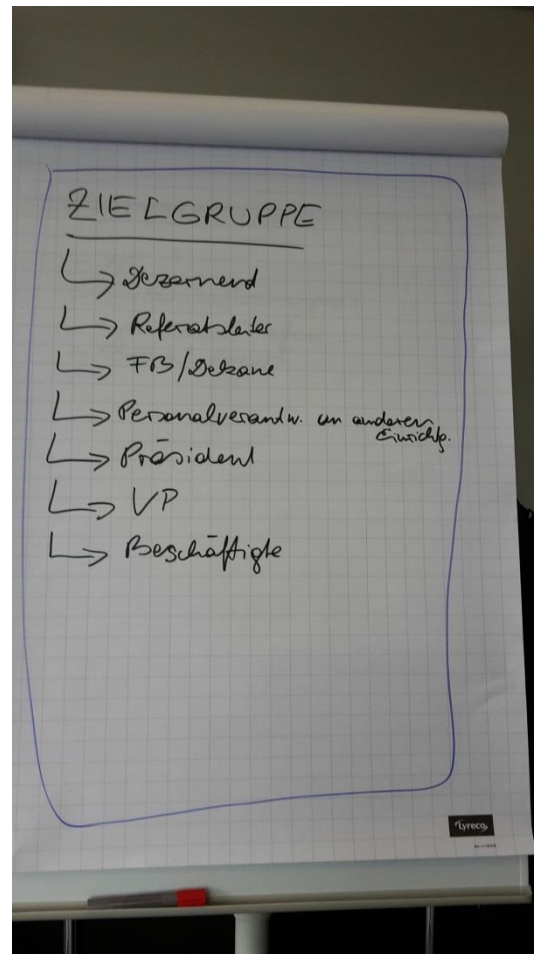 ZIELGRUPPE
Dezernend
Referatsleiter
FB/Dekane
Personalverantw. an anderen
Einrichtg.
Präsident
VP
Beschäftigte
lyreco